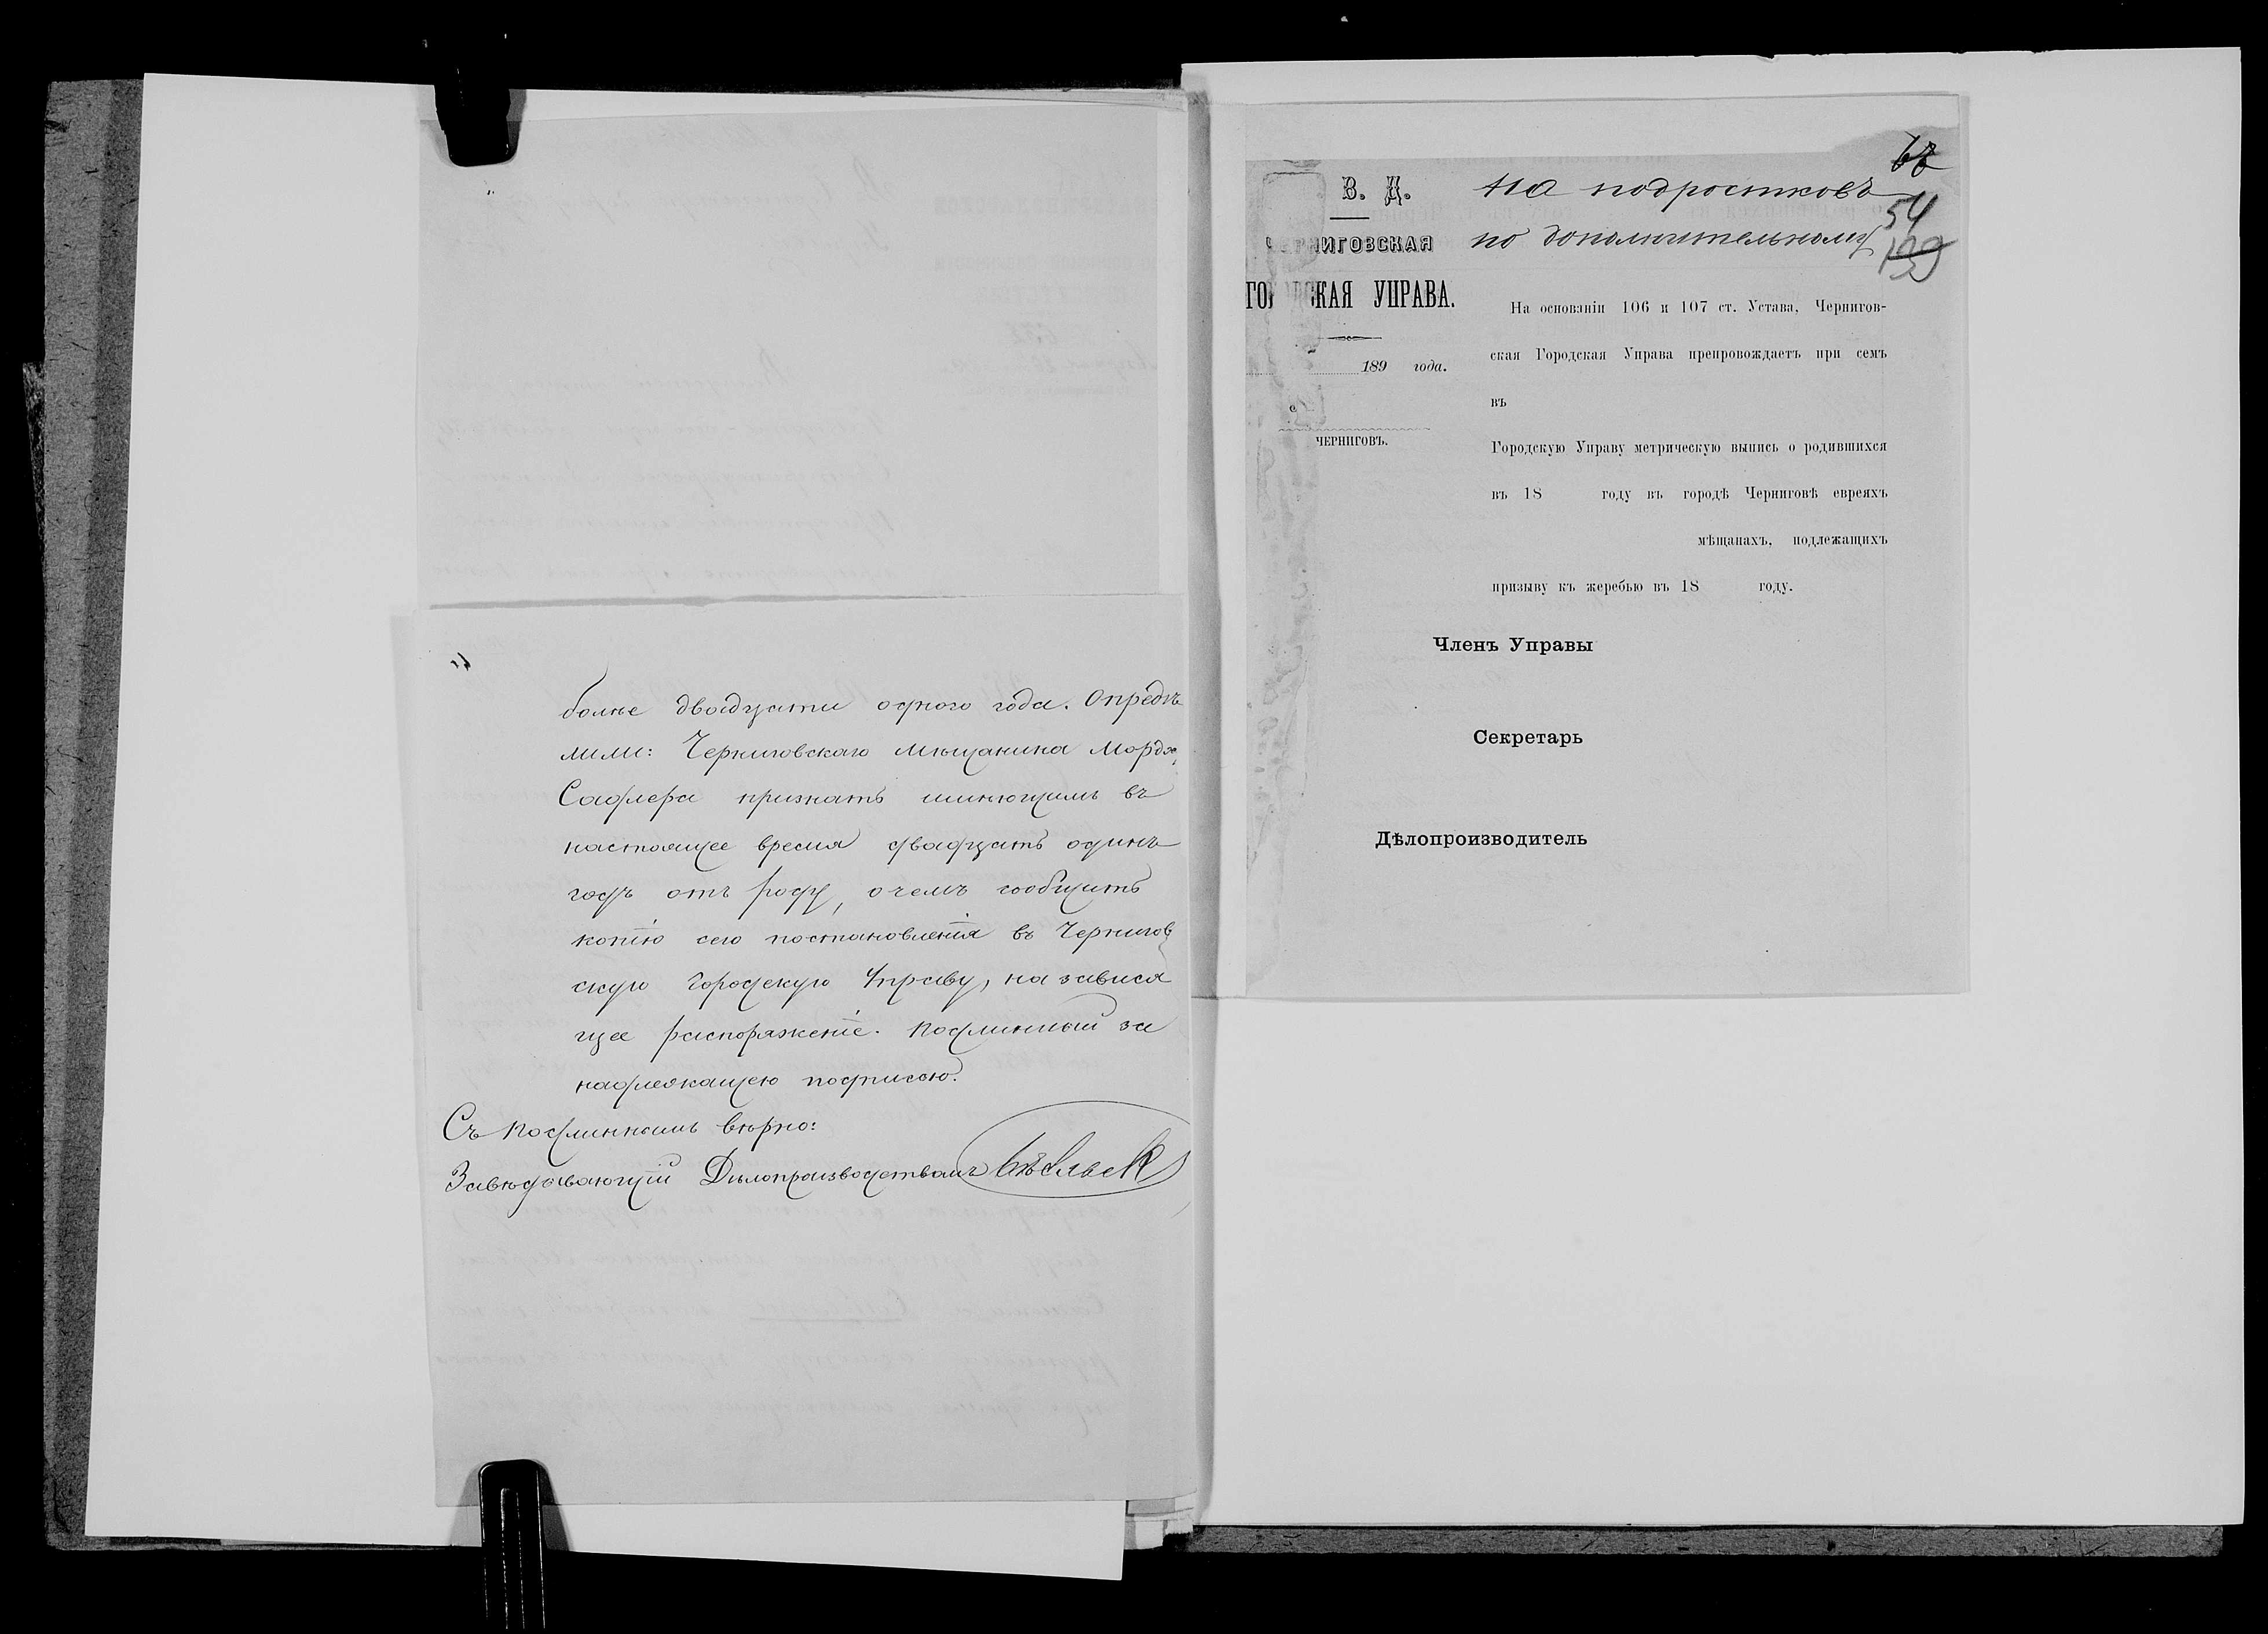 более двадцати одного года. Опредѣ
лили: Черниговскаго мѣщанина Мордх
Садлера признать имѣющимъ въ
настоящее время двадцать одинъ
годъ отъ роду, о чемъ сообщить
копію сего постановленія въ Чернигов
скую Городскую Управу, на завися
щее распоряженіе. Подлинный за
надлежащею подписью.
Съ подлиннымъ вѣрно:
Завѣдывающій Дѣлопроизводствомъ
68
На подростковъ
54
по дополнительному
139
В. Д.
ЧЕРНИГОВСКАЯ
ГОРОДСКАЯ УПРАВА.
189 года.
ЧЕРНИГОВЪ.
На основаніи 106 и 107 ст. Устава, Чернигов-
ская Городская Управа препровождаетъ при семъ
въ
Городскую Управу метрическую выпись о родившихся
въ 18 году въ городѣ Черниговѣ евреяхъ
мѣщанахъ, подлежащихъ
призыву къ жеребью въ 18 году.
Членъ Управы
Секретарь
Дѣлопроизводитель